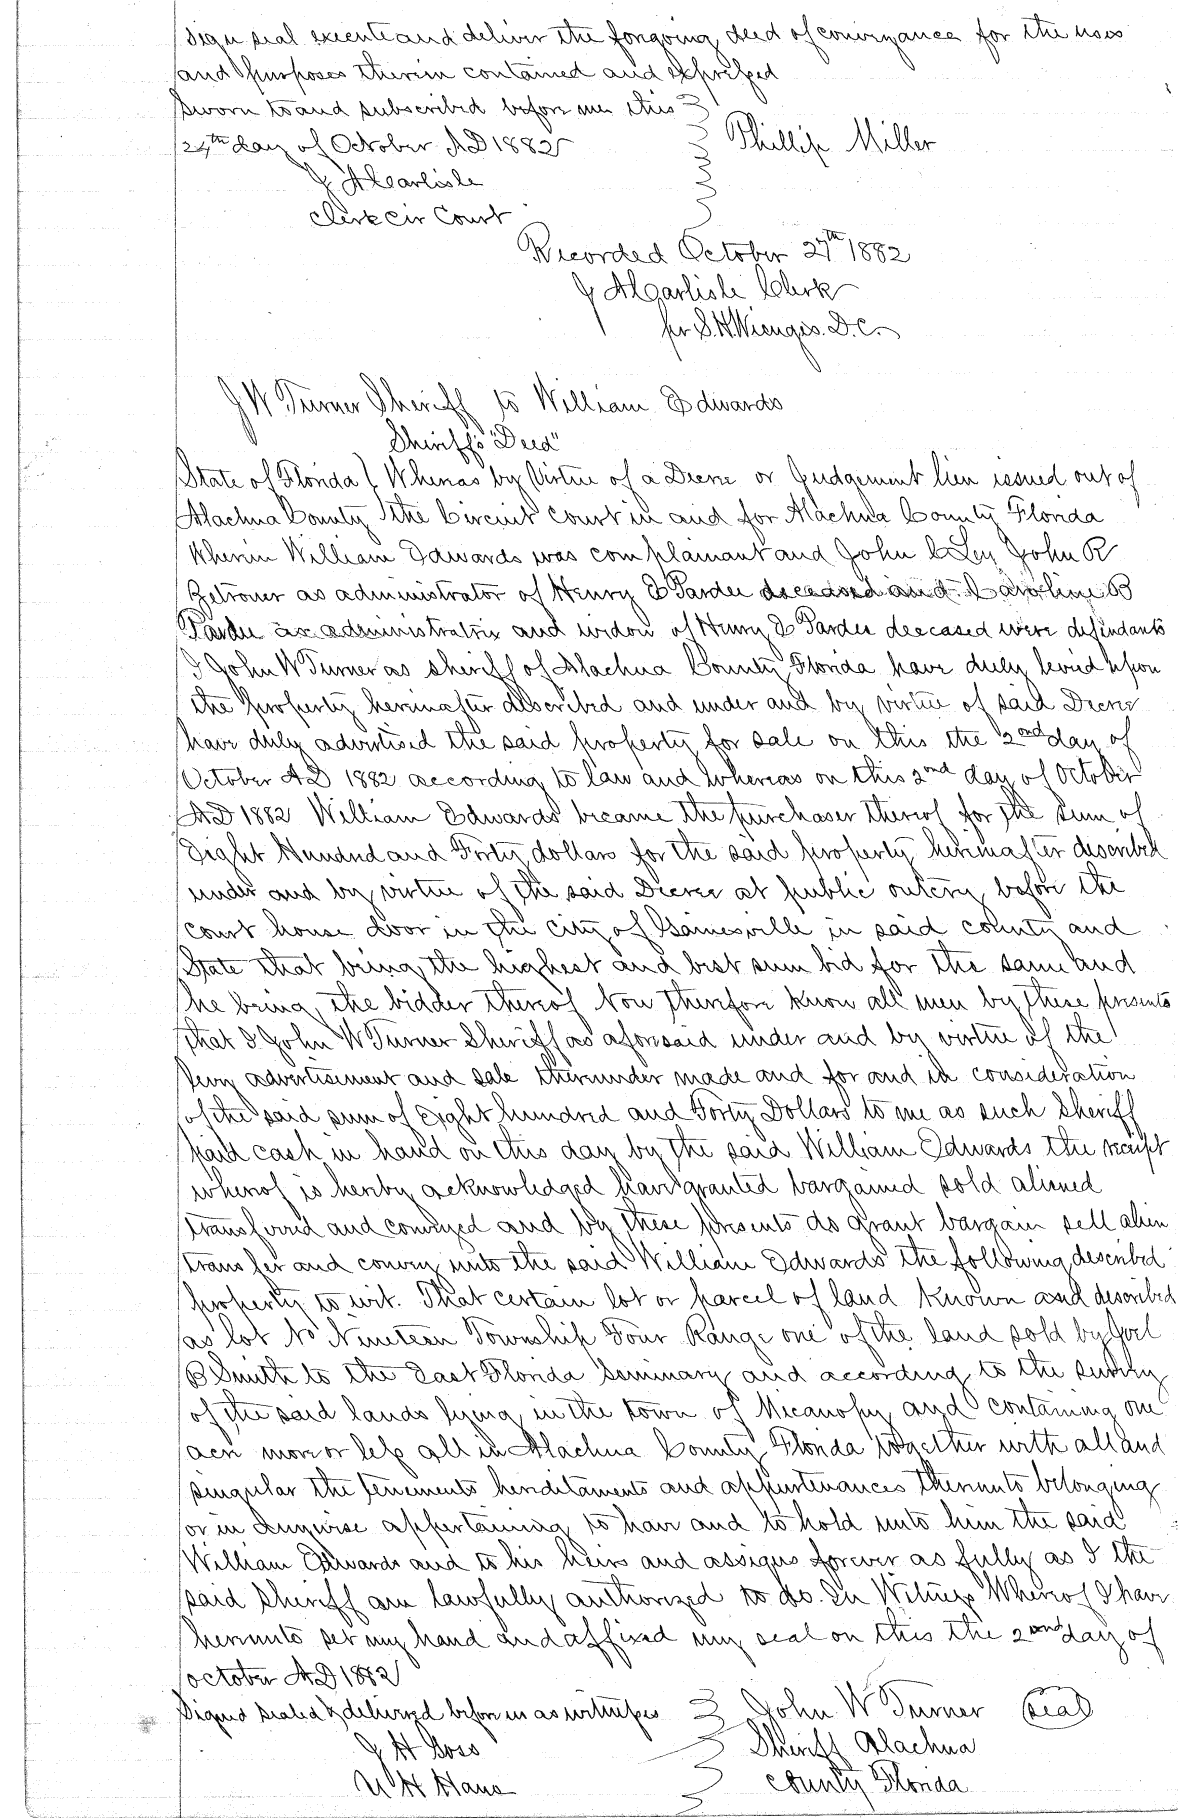 Sign seal execute and deliver the foregoing deed of conveyance for the uses
and purposes therein contained and expressed
Sworn to and subscribed before me this
day of October AD 1882
Phillip Miller
J A Carlisle
Clerk Cir Court
Recorded October 27th 1882
J A Carlisle Clerk
per S. H. Wienges. D.C.
J W Turner Sheriff to William Edwards
Sheriffs "Deed"
State of Florida } Whereas by Virtue of a Decree or Judgement lien issued out of
Alachua County } the Circuit Court in and for Alachua County Florida
Wherein William Edwards was complainant and John C Ley John R
Zetrouer as administrator of Henry E Pardee deceased and Caroline B
Pardee as administratrix and widow of Henry E Pardee deceased were defendants
I John W Turner as sheriff of Alachua County Florida have duly levied upon
the property hereinafter described and under and by virtue of said Decree
have duly advertised the said property for sale on this the 2nd day of
October AD 1882 according to law and whereas on this 2nd day of October
AD 1882 William Edwards became the purchaser thereof for the sum of
Eight Hundred and Forty dollars for the said property hereinafter described
under and by virtue of the said Decree at public outcry before the
court house door in the city of Gainesville in said county and
State that being the highest and best sum bid for the same and
he being the bidder thereof Now Therefore Know all men by these presents
that I John W Turner Sheriff as aforesaid under and by virtue of the
levy advertisement and sale thereunder made and for and in consideration
of the said sum of Eight hundred and Forty Dollars to me as such Sheriff
paid cash in hand on this day by the said William Edwards the receipt
whereof is hereby acknowledged have granted bargained sold aliened
transferred and conveyed and by these presents do grant bargain sell alien
transfer and convey unto the said William Edwards the following described
property to wit. That certain lot or parcel of land known and described
as lot No Nineteen Township Four Range one of the land sold by Joel
B Smith to the East Florida Seminary and according to the survey
of the said lands lying in the town of Micanopy and containing one
acre more or less all in Alachua County Florida together with all and
singular the tenements hereditaments and appurtenances thereunto belonging
or in anywise appertaining to have and to hold unto him the said
William Edwards and to his heirs and assigns forever as fully as I the
said Sheriff am lawfully authorized to do. In Witness Whereof I have
hereunto set my hand and affixed my seal on this the 2nd day of
October AD 1882
Signed sealed & delivered before us as witnesses
John W Turner (seal)
J H Goss
Sheriff Alachua
County Florida